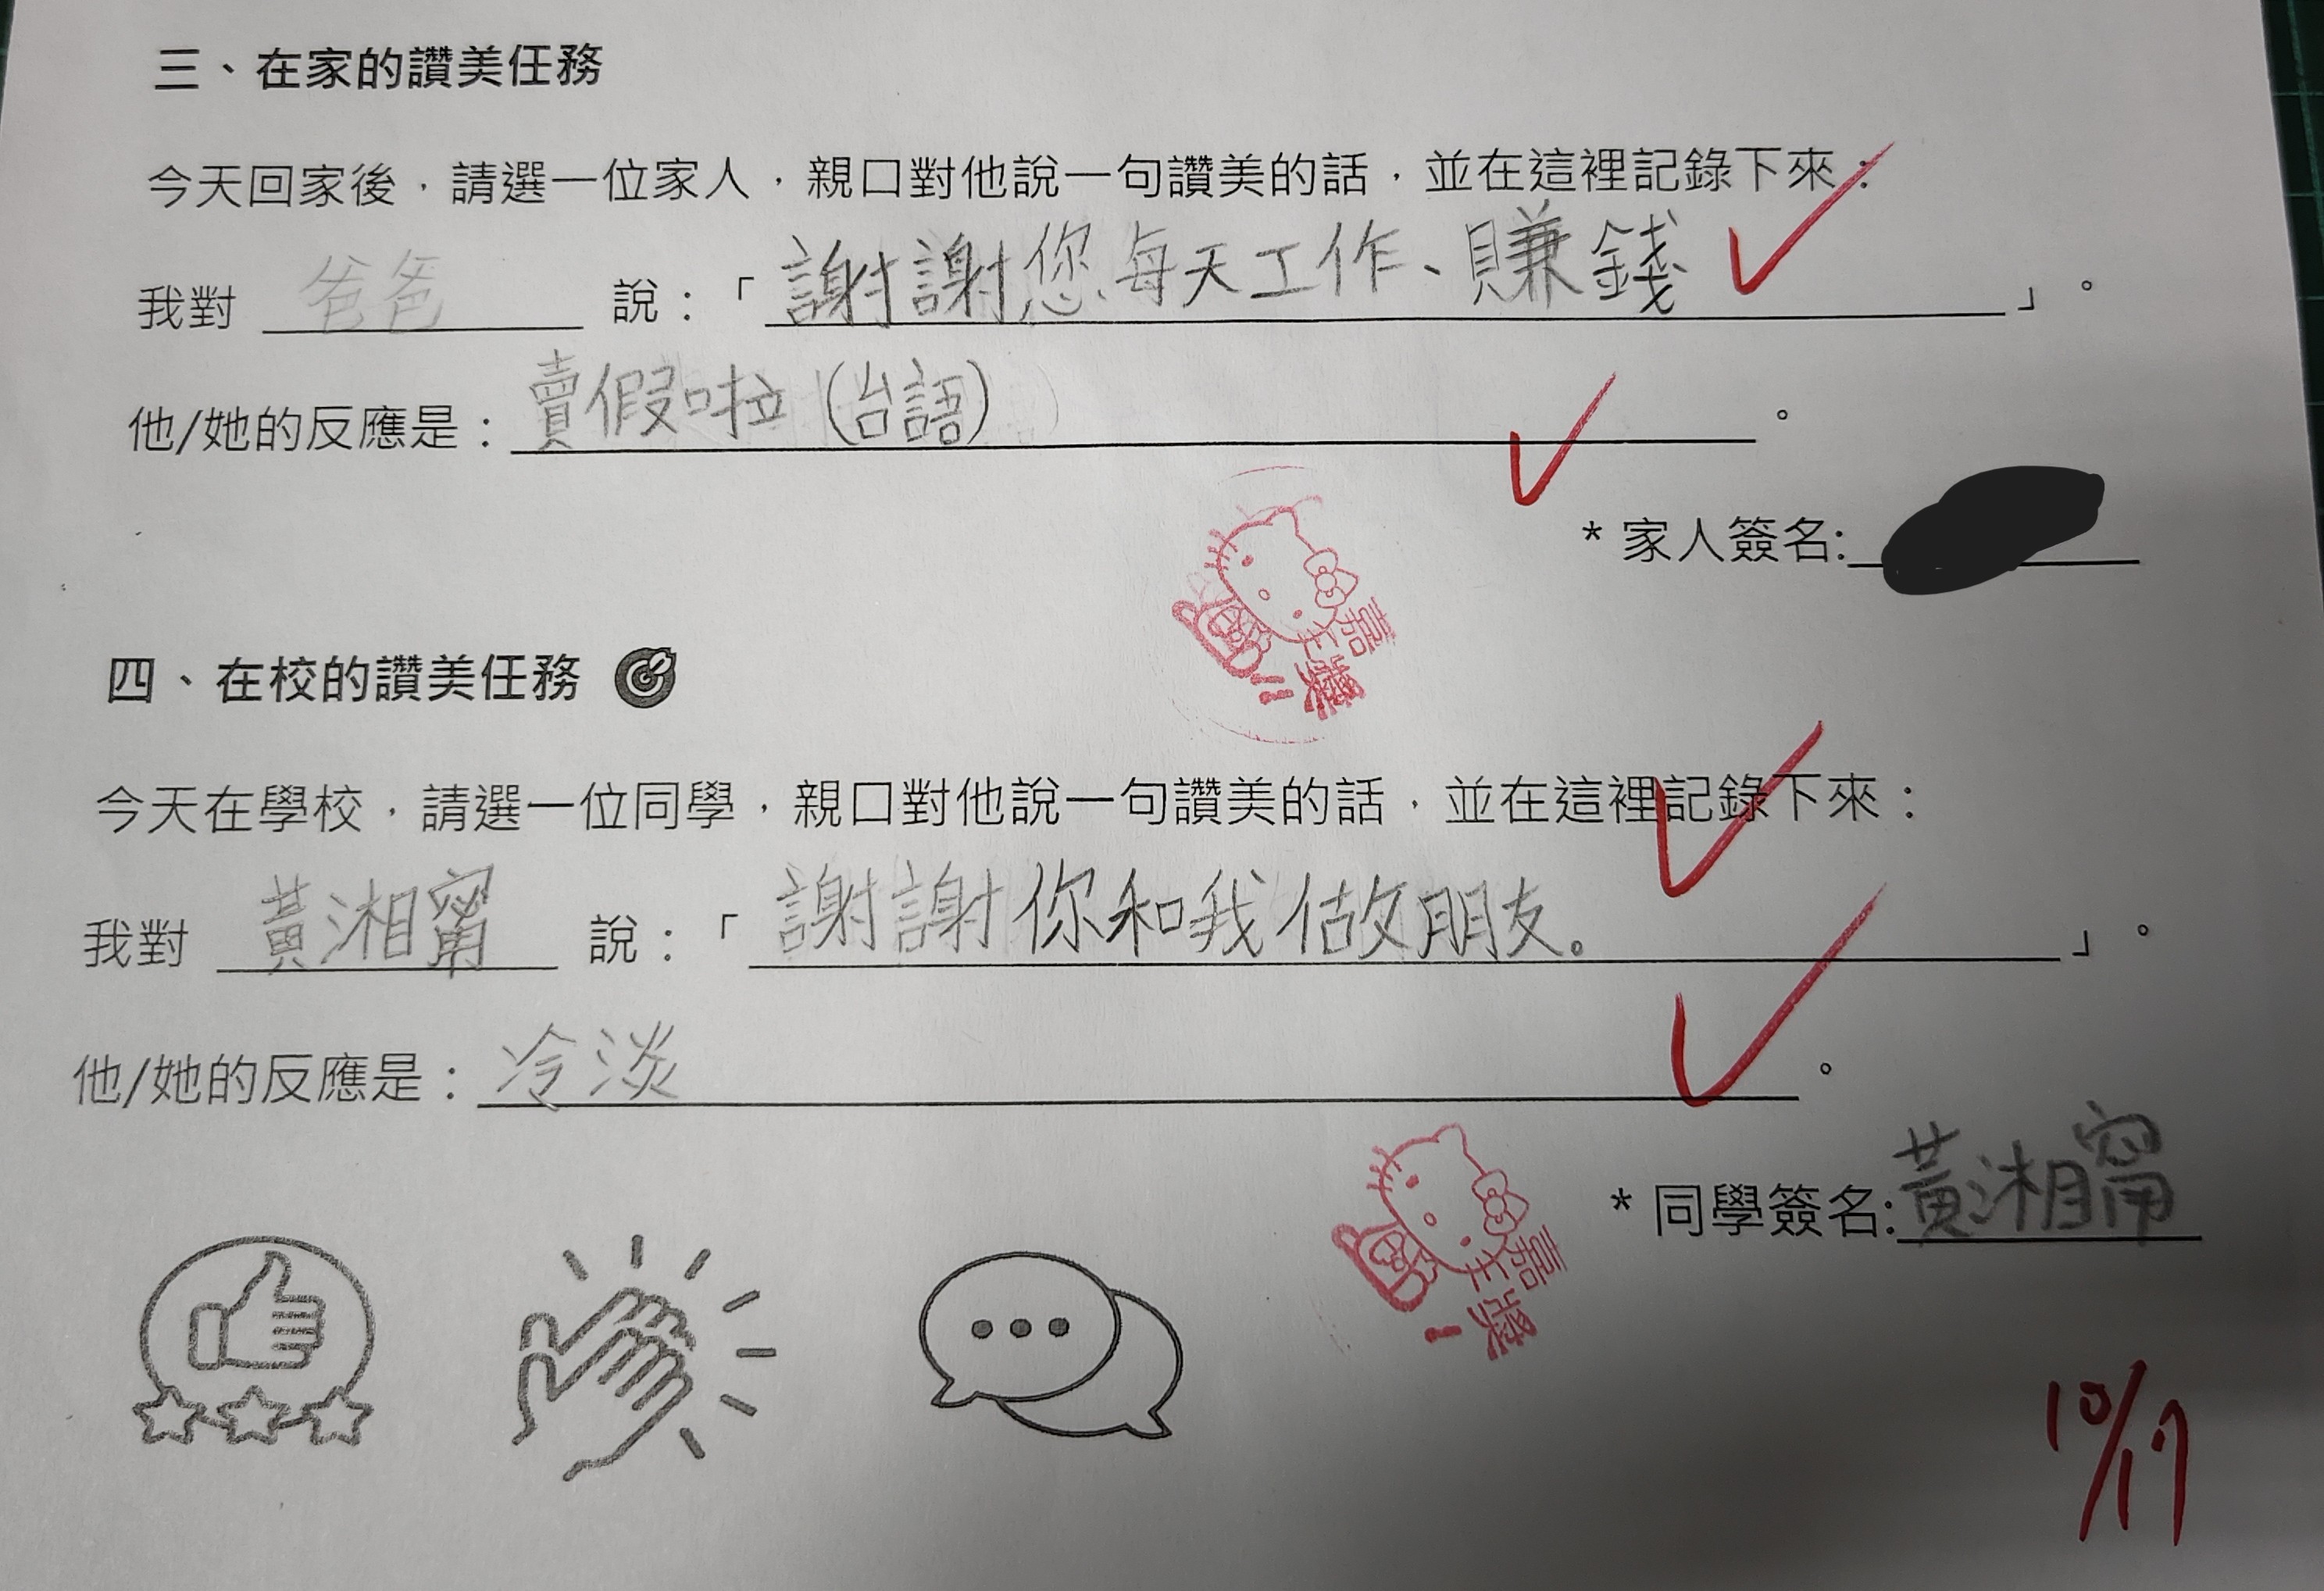 三、在家的讚美任務
今天回家後，請選一位家人，親口對他說一句讚美的話，並在這裡記錄下來：
我對 爸爸 說：「謝謝您每天工作、賺錢」。
他/她的反應是：賣假啦(台語)。
* 家人簽名:
嘉獎
四、在校的讚美任務
今天在學校，請選一位同學，親口對他說一句讚美的話，並在這裡記錄下來：
我對 黃湘甯 說：「謝謝你和我做朋友。」。
他/她的反應是：冷淡。
* 同學簽名:黃湘甯
嘉獎
10/17